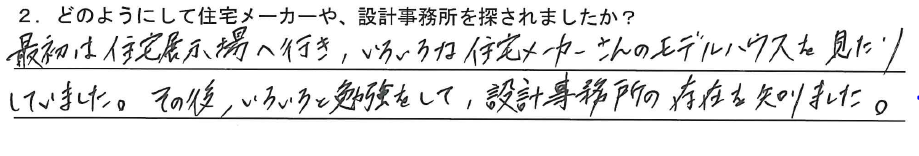 2．どのようにして住宅メーカーや、設計事務所を探されましたか？
最初は住宅展示場へ行き，いろいろな住宅メーカーさんのモデルハウスを見たり
していました。その後，いろいろと勉強をして，設計事務所の存在を知りました。